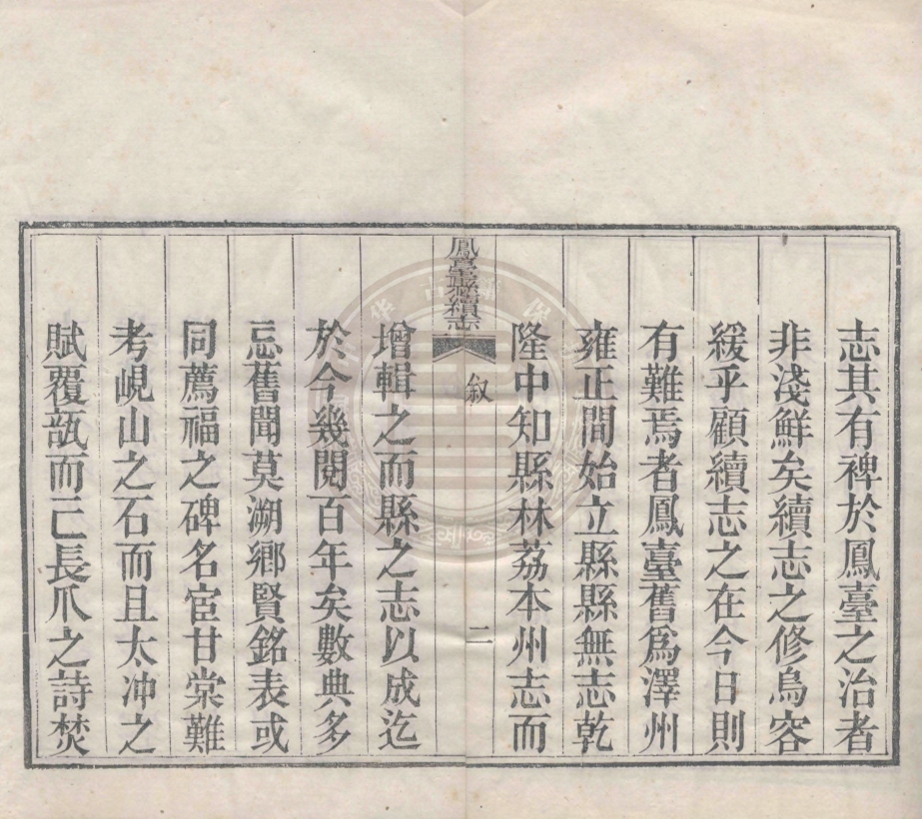 志其有裨於鳳臺之治者
非淺鮮矣續志之修烏容
緩乎顧續志之在今日則
有難焉者鳳臺舊爲澤州
雍正間始立縣縣無志乾
隆中知縣林荔本州志而
鳳臺縣續志
叙
二
增輯之而縣之志以成迄
於今幾閱百年矣數典多
忘舊聞莫溯鄉賢銘表或
同薦福之碑名宦甘棠難
考峴山之石而且太冲之
賦覆瓿而已長爪之詩焚